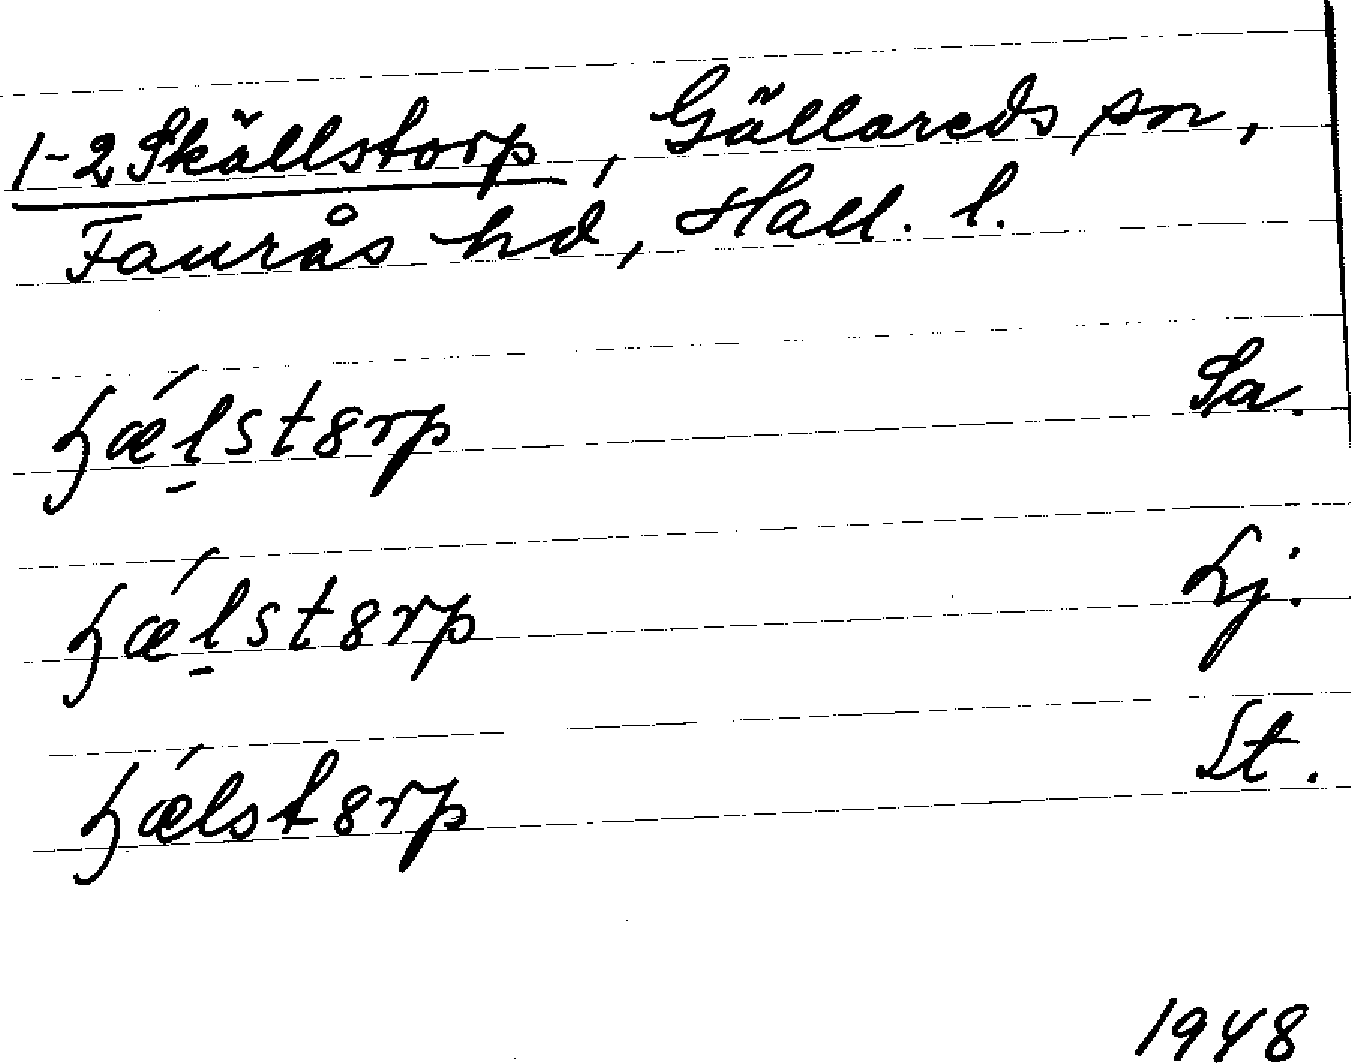 1-2 Skällstorp, Gällareds sn,
Faurås hd, Hall. l.
ꜧǽl̠st8rp Sa.
ꜧǽl̠st8rp Lj.
ꜧǽlst8rp St.
1948